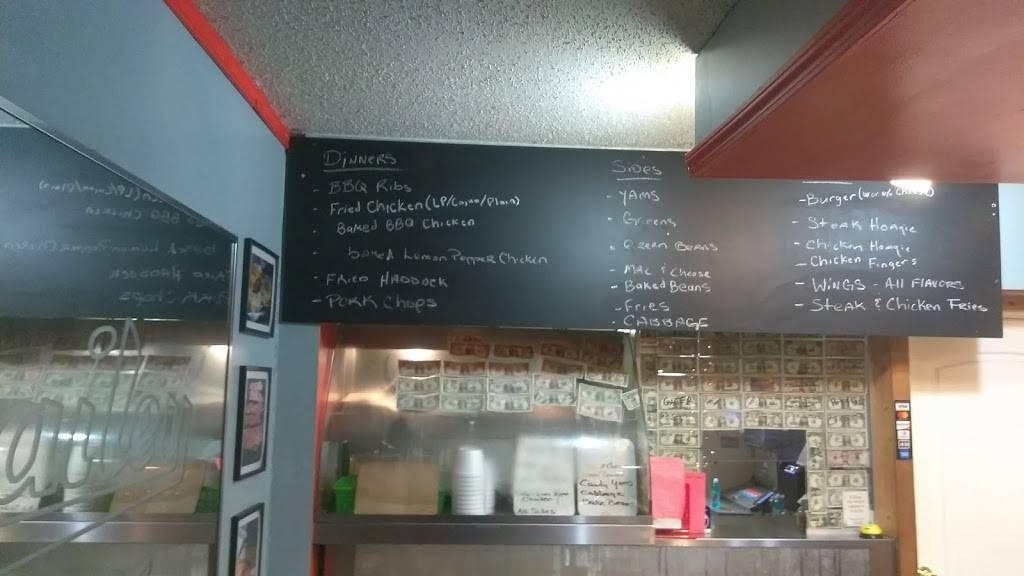 DINNERS
- BBQ Ribs
- Fried Chicken (LP/Cajun/Plain)
- Baked BBQ Chicken
- baked Lemon Pepper Chicken
- FRIED HADDOCK
- PORK Chops
SidES
- YAMS
- Greens
- Green Beans
- MAC & Cheese
- Baked Beans
- Fries
- CABBAGE
- Burger (w or w/o Cheese)
- Steak Hoagie
- Chicken Hoagie
- Chicken Fingers
- WINGS - All FLAVORS
- Steak & Chicken Fries
Candy Yams
Cabbage
Chicken
All Sides
VISA